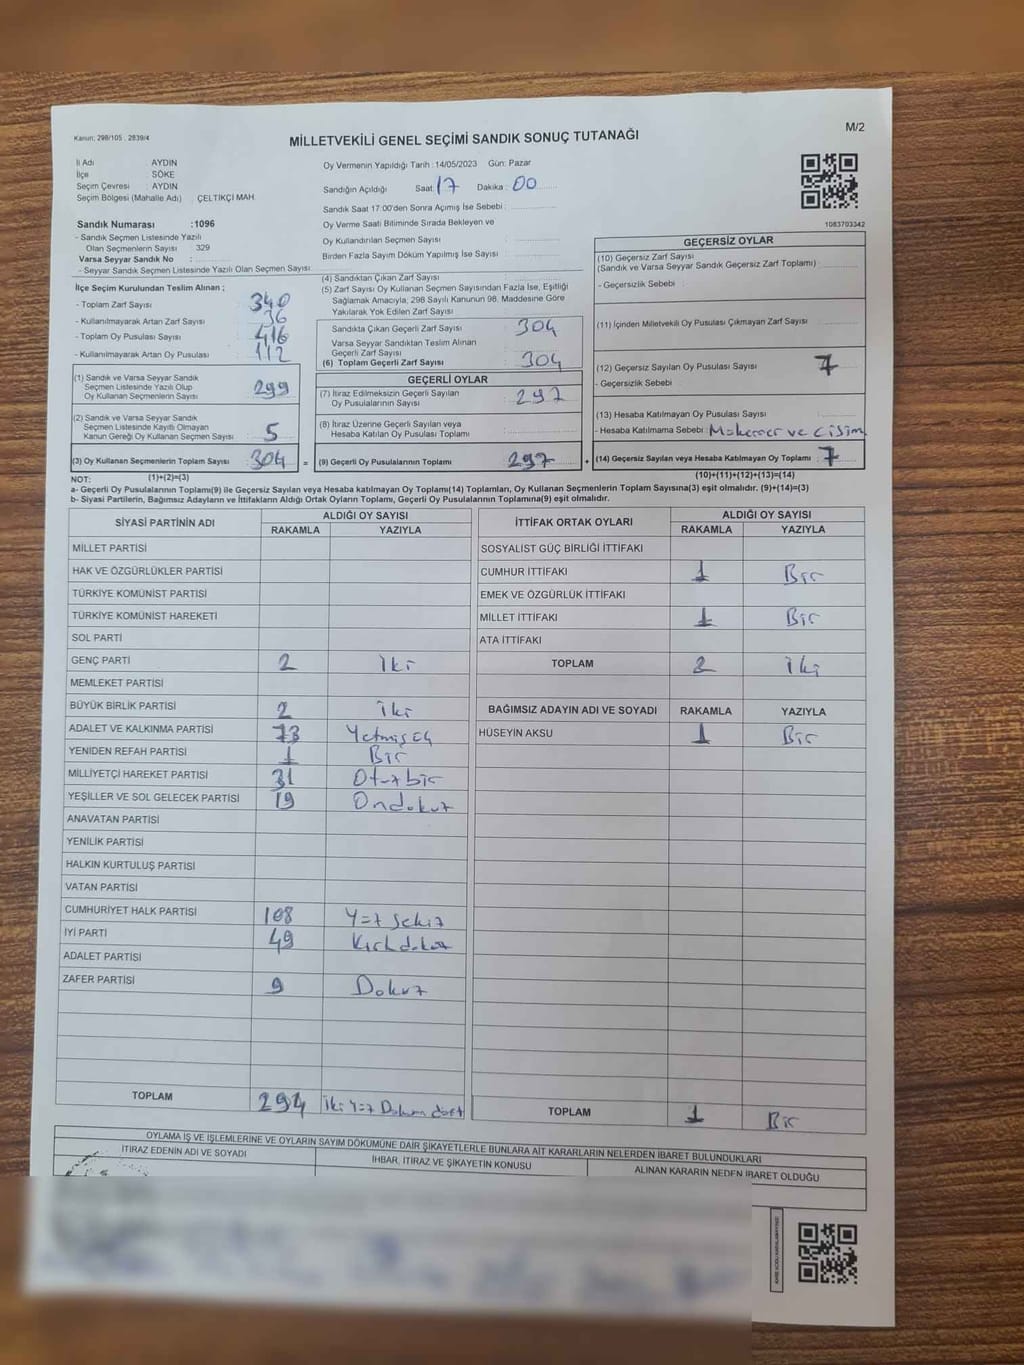 Kanun: 298/105 , 2839/4
M/2
MİLLETVEKİLİ GENEL SEÇİMİ SANDIK SONUÇ TUTANAĞI
İl Adı : AYDIN
İlçe : SÖKE
Seçim Çevresi : AYDIN
Seçim Bölgesi (Mahalle Adı) : ÇELTİKÇİ MAH.
Sandık Numarası :1096
- Sandık Seçmen Listesinde Yazılı
Olan Seçmenlerin Sayısı : 329
Varsa Seyyar Sandık No :
- Seyyar Sandık Seçmen Listesinde Yazılı Olan Seçmen Sayısı :
Oy Vermenin Yapıldığı Tarih : 14/05/2023 Gün: Pazar
Sandığın Açıldığı Saat: 17 Dakika : 00
Sandık Saat 17:00'den Sonra Açımış İse Sebebi :
Oy Verme Saati Bitiminde Sırada Bekleyen ve
Oy Kullandırılan Seçmen Sayısı :
Birden Fazla Sayım Döküm Yapılmış İse Sayısı :
1083703342
İlçe Seçim Kurulundan Teslim Alınan ;
- Toplam Zarf Sayısı : 340
- Kullanılmayarak Artan Zarf Sayısı : 36
- Toplam Oy Pusulası Sayısı : 416
- Kullanılmayarak Artan Oy Pusulası : 112
(1) Sandık ve Varsa Seyyar Sandık
Seçmen Listesinde Yazılı Olup
Oy Kullanan Seçmenlerin Sayısı : 299
(2) Sandık ve Varsa Seyyar Sandık
Seçmen Listesinde Kayıtlı Olmayan
Kanun Gereği Oy Kullanan Seçmen Sayısı : 5
(3) Oy Kullanan Seçmenlerin Toplam Sayısı : 304 =
(1)+(2)=(3)
(4) Sandıktan Çıkan Zarf Sayısı :
(5) Zarf Sayısı Oy Kullanan Seçmen Sayısından Fazla İse, Eşitliği
Sağlamak Amacıyla, 298 Sayılı Kanunun 98. Maddesine Göre
Yakılarak Yok Edilen Zarf Sayısı :
Sandıkta Çıkan Geçerli Zarf Sayısı : 304
Varsa Seyyar Sandıktan Teslim Alınan
Geçerli Zarf Sayısı :
(6) Toplam Geçerli Zarf Sayısı : 304
GEÇERLİ OYLAR
(7) İtiraz Edilmeksizin Geçerli Sayılan
Oy Pusulalarının Sayısı : 297
(8) İtiraz Üzerine Geçerli Sayılan veya
Hesaba Katılan Oy Pusulası Toplamı :
(9) Geçerli Oy Pusulalarının Toplamı : 297 +
GEÇERSİZ OYLAR
(10) Geçersiz Zarf Sayısı
(Sandık ve Varsa Seyyar Sandık Geçersiz Zarf Toplamı) :
- Geçersizlik Sebebi :
(11) İçinden Milletvekili Oy Pusulası Çıkmayan Zarf Sayısı :
(12) Geçersiz Sayılan Oy Pusulası Sayısı : 7
- Geçersizlik Sebebi :
(13) Hesaba Katılmayan Oy Pusulası Sayısı :
- Hesaba Katılmama Sebebi : ve cisim
(14) Geçersiz Sayılan veya Hesaba Katılmayan Oy Toplamı : 7
(10)+(11)+(12)+(13)=(14)
NOT:
a- Geçerli Oy Pusulalarının Toplamı(9) ile Geçersiz Sayılan veya Hesaba Katılmayan Oy Toplamı(14) Toplamları, Oy Kullanan Seçmenlerin Toplam Sayısına(3) eşit olmalıdır. (9)+(14)=(3)
b- Siyasi Partilerin, Bağımsız Adayların ve İttifakların Aldığı Ortak Oyların Toplamı, Geçerli Oy Pusulalarının Toplamına(9) eşit olmalıdır.
SİYASİ PARTİNİN ADI ALDIĞI OY SAYISI
RAKAMLA YAZIYLA
MİLLET PARTİSİ
HAK VE ÖZGÜRLÜKLER PARTİSİ
TÜRKİYE KOMÜNİST PARTİSİ
TÜRKİYE KOMÜNİST HAREKETİ
SOL PARTİ
GENÇ PARTİ 2 İki
MEMLEKET PARTİSİ
BÜYÜK BİRLİK PARTİSİ 2 İki
ADALET VE KALKINMA PARTİSİ 73 Yetmişüç
YENİDEN REFAH PARTİSİ 1 Bir
MİLLİYETÇİ HAREKET PARTİSİ 31 Otuzbir
YEŞİLLER VE SOL GELECEK PARTİSİ 19 Ondokuz
ANAVATAN PARTİSİ
YENİLİK PARTİSİ
HALKIN KURTULUŞ PARTİSİ
VATAN PARTİSİ
CUMHURİYET HALK PARTİSİ 108 Yüz Sekiz
İYİ PARTİ 49 Kırkdokuz
ADALET PARTİSİ
ZAFER PARTİSİ 9 Dokuz
TOPLAM 294 İki Yüz Doksan dört
İTTİFAK ORTAK OYLARI ALDIĞI OY SAYISI
RAKAMLA YAZIYLA
SOSYALIST GÜÇ BİRLİĞİ İTTİFAKI
CUMHUR İTTİFAKI 1 Bir
EMEK VE ÖZGÜRLÜK İTTİFAKI
MİLLET İTTİFAKI 1 Bir
ATA İTTİFAKI
TOPLAM 2 İki
BAĞIMSIZ ADAYIN ADI VE SOYADI RAKAMLA YAZIYLA
HÜSEYİN AKSU 1 Bir
TOPLAM 1 Bir
OYLAMA İŞ VE İŞLEMLERİNE VE OYLARIN SAYIM DÖKÜMÜNE DAİR ŞİKAYETLERLE BUNLARA AİT KARARLARIN NELERDEN İBARET BULUNDUKLARI
İTİRAZ EDENİN ADI VE SOYADI İHBAR, İTİRAZ VE ŞİKAYETİN KONUSU ALINAN KARARIN NEDEN İBARET OLDUĞU